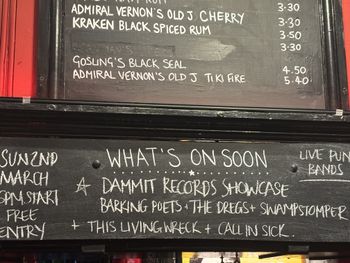 ADMIRAL VERNON'S OLD J CHERRY 3.30
KRAKEN BLACK SPICED RUM 3.50
3.50
3.30
GOSLING'S BLACK SEAL 4.50
ADMIRAL VERNON'S OLD J TIKI FIRE 5.40
SUN 2ND
MARCH
START
FREE
ENTRY
WHAT'S ON SOON
DAMMIT RECORDS SHOWCASE
BARKING POETS + THE DREGS + SWAMPSTOMPER
+ THIS LIVING WRECK + CALL IN SICK.
LIVE PUNK
BANDS